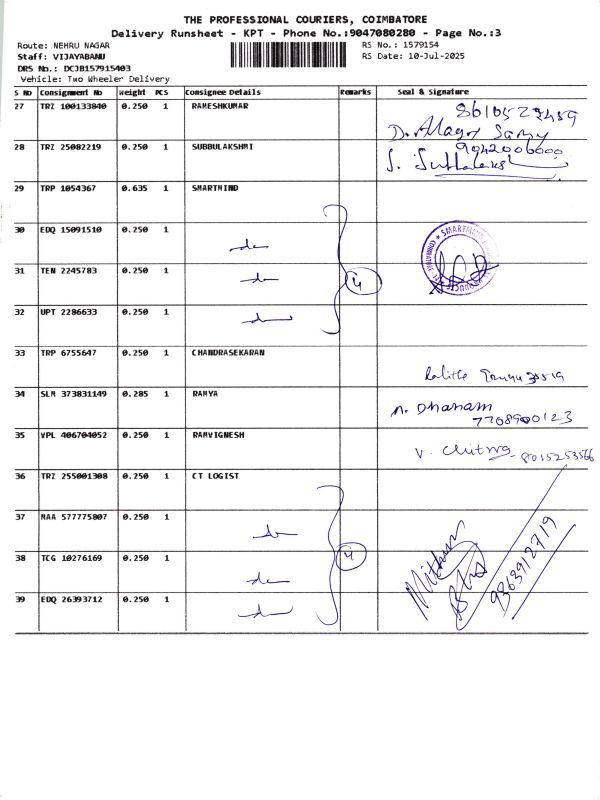 THE PROFESSIONAL COURIERS, COIMBATORE
Delivery Runsheet - KPT - Phone No.:9047080280 - Page No.:3
Route: NEHRU NAGAR RS No.: 1579154
Staff: VIJAYABANU RS Date: 10-Jul-2025
DRS No.: DCJB157915403
Vehicle: Two Wheeler Delivery
S No Consignment No Weight PCS Consignee Details Remarks Seal & Signature
27 TRZ 100133840 0.250 1 RAMESHKUMAR
D. Alagar Samy
28 TRZ 25082219 0.250 1 SUBBULAKSHMI 9042006000
S. Subbulakshmi
29 TRP 1054367 0.635 1 SMARTMIND
30 EDQ 15091510 0.250 1
31 TEN 2245783 0.250 1 4
32 UPT 2286633 0.250 1
33 TRP 6755647 0.250 1 CHANDRASEKARAN
Lalitha
34 SLM 373831149 0.285 1 RAMYA n. Dhanam
7708900123
35 VPL 406704052 0.250 1 RAMVIGNESH V. Chitra 8015253566
36 TRZ 255001308 0.250 1 CT LOGIST
37 MAA 577775807 0.250 1
38 TCG 10276169 0.250 1 4 Mithun 9363912719
39 EDQ 26393712 0.250 1